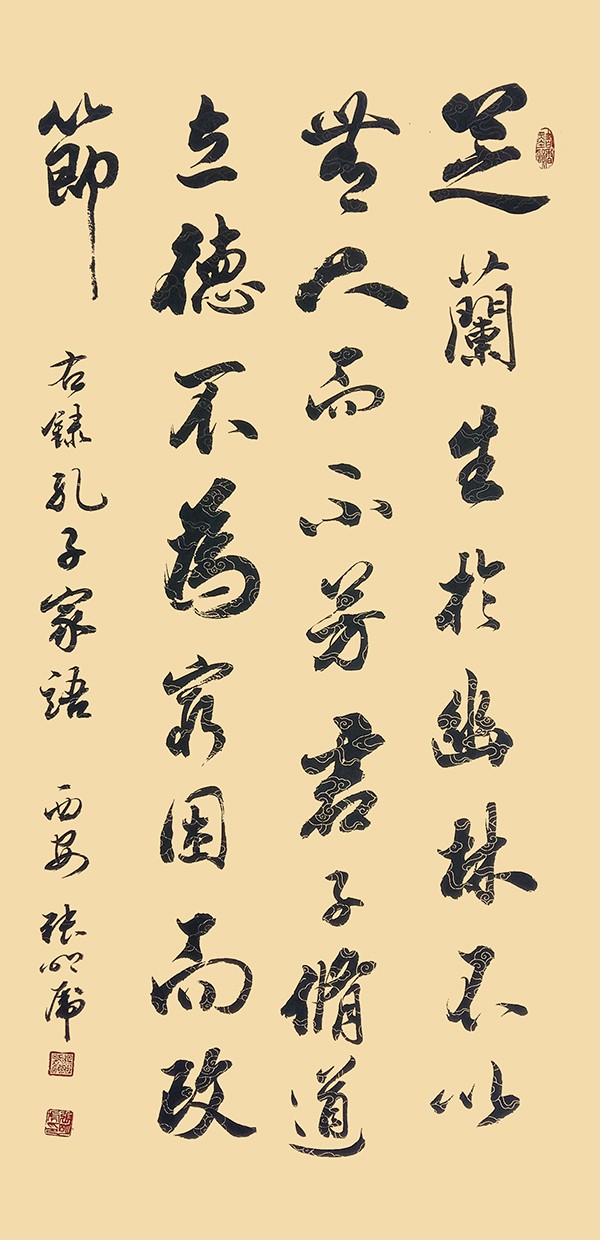 芝蘭生於幽林不以
無人而不芳君子脩道
立德不為窮困而改
節
右録孔子家語 西安 張明虎